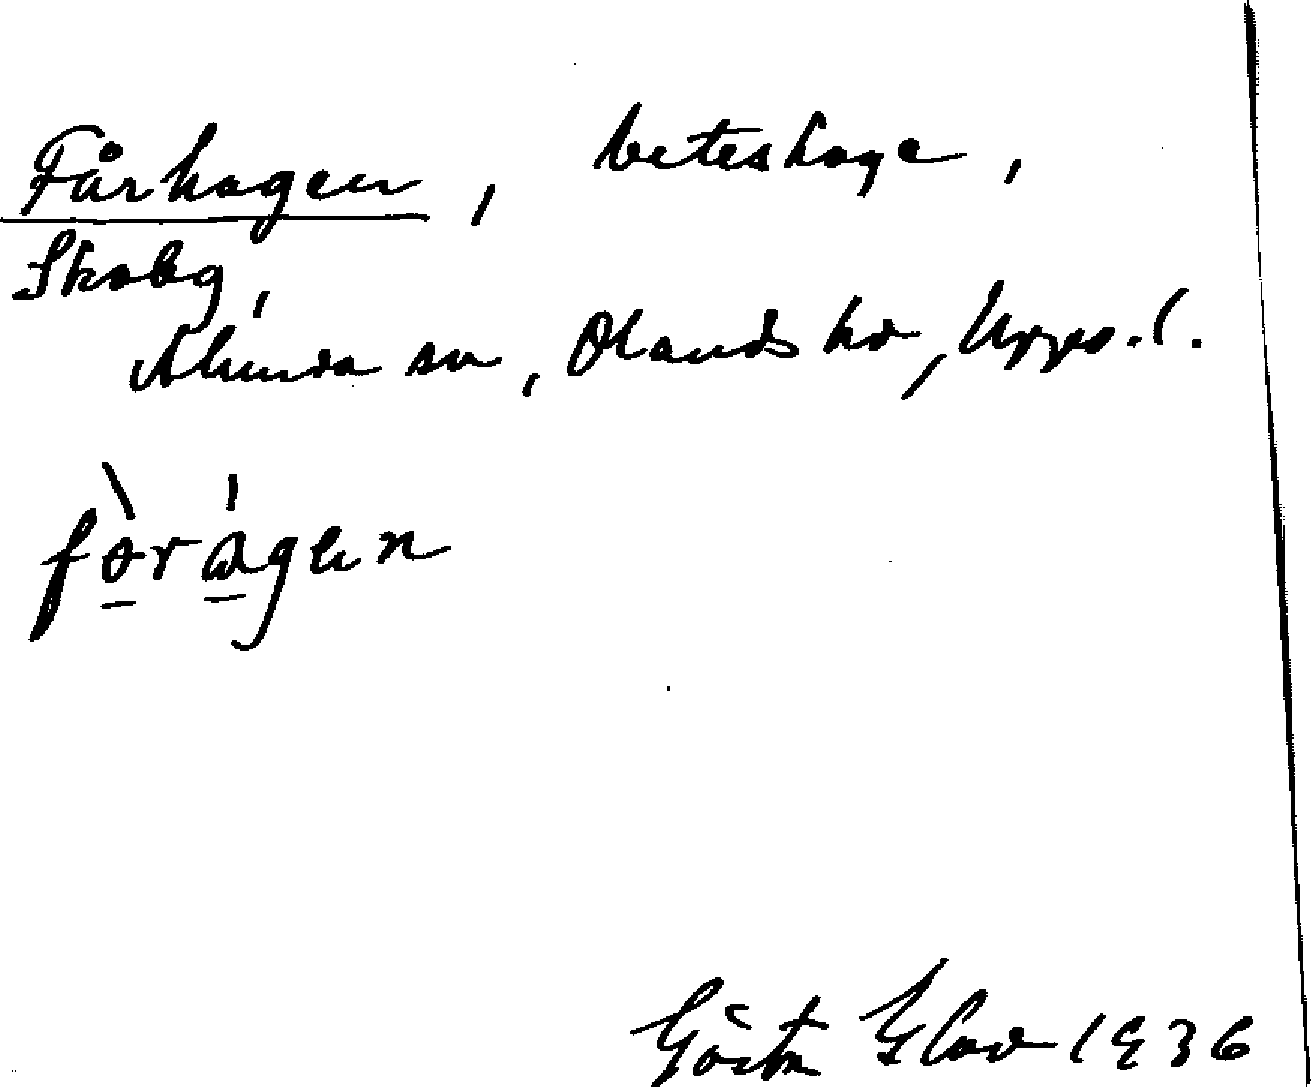 Fårhagen, beteshage,
Skoby,
Alunda sn, Olands hd, Upps. l.
fòrágen
Gösta 1936